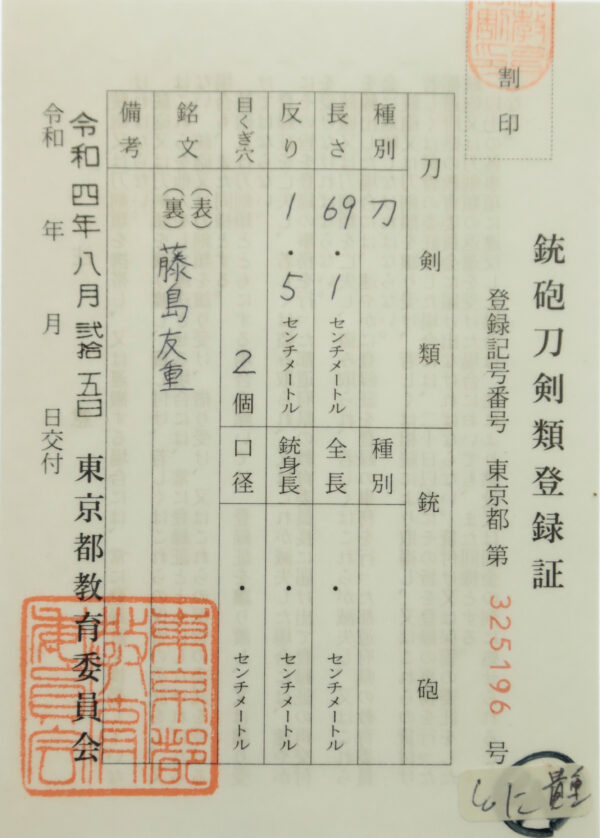 割印
銃砲刀剣類登録証
登録記号番号 東京都 第 325196 号
刀剣類
銃砲
種別 刀
種別
長さ 69・1 センチメートル
全長 ・ センチメートル
反り 1・5 センチメートル
銃身長 ・ センチメートル
目くぎ穴 2個
口径 ・ センチメートル
銘文
(表)
(裏) 藤島友重
備考
令和 年 月 日交付
令和四年八月弐拾五日
東京都教育委員会
東京都
教育
委員会